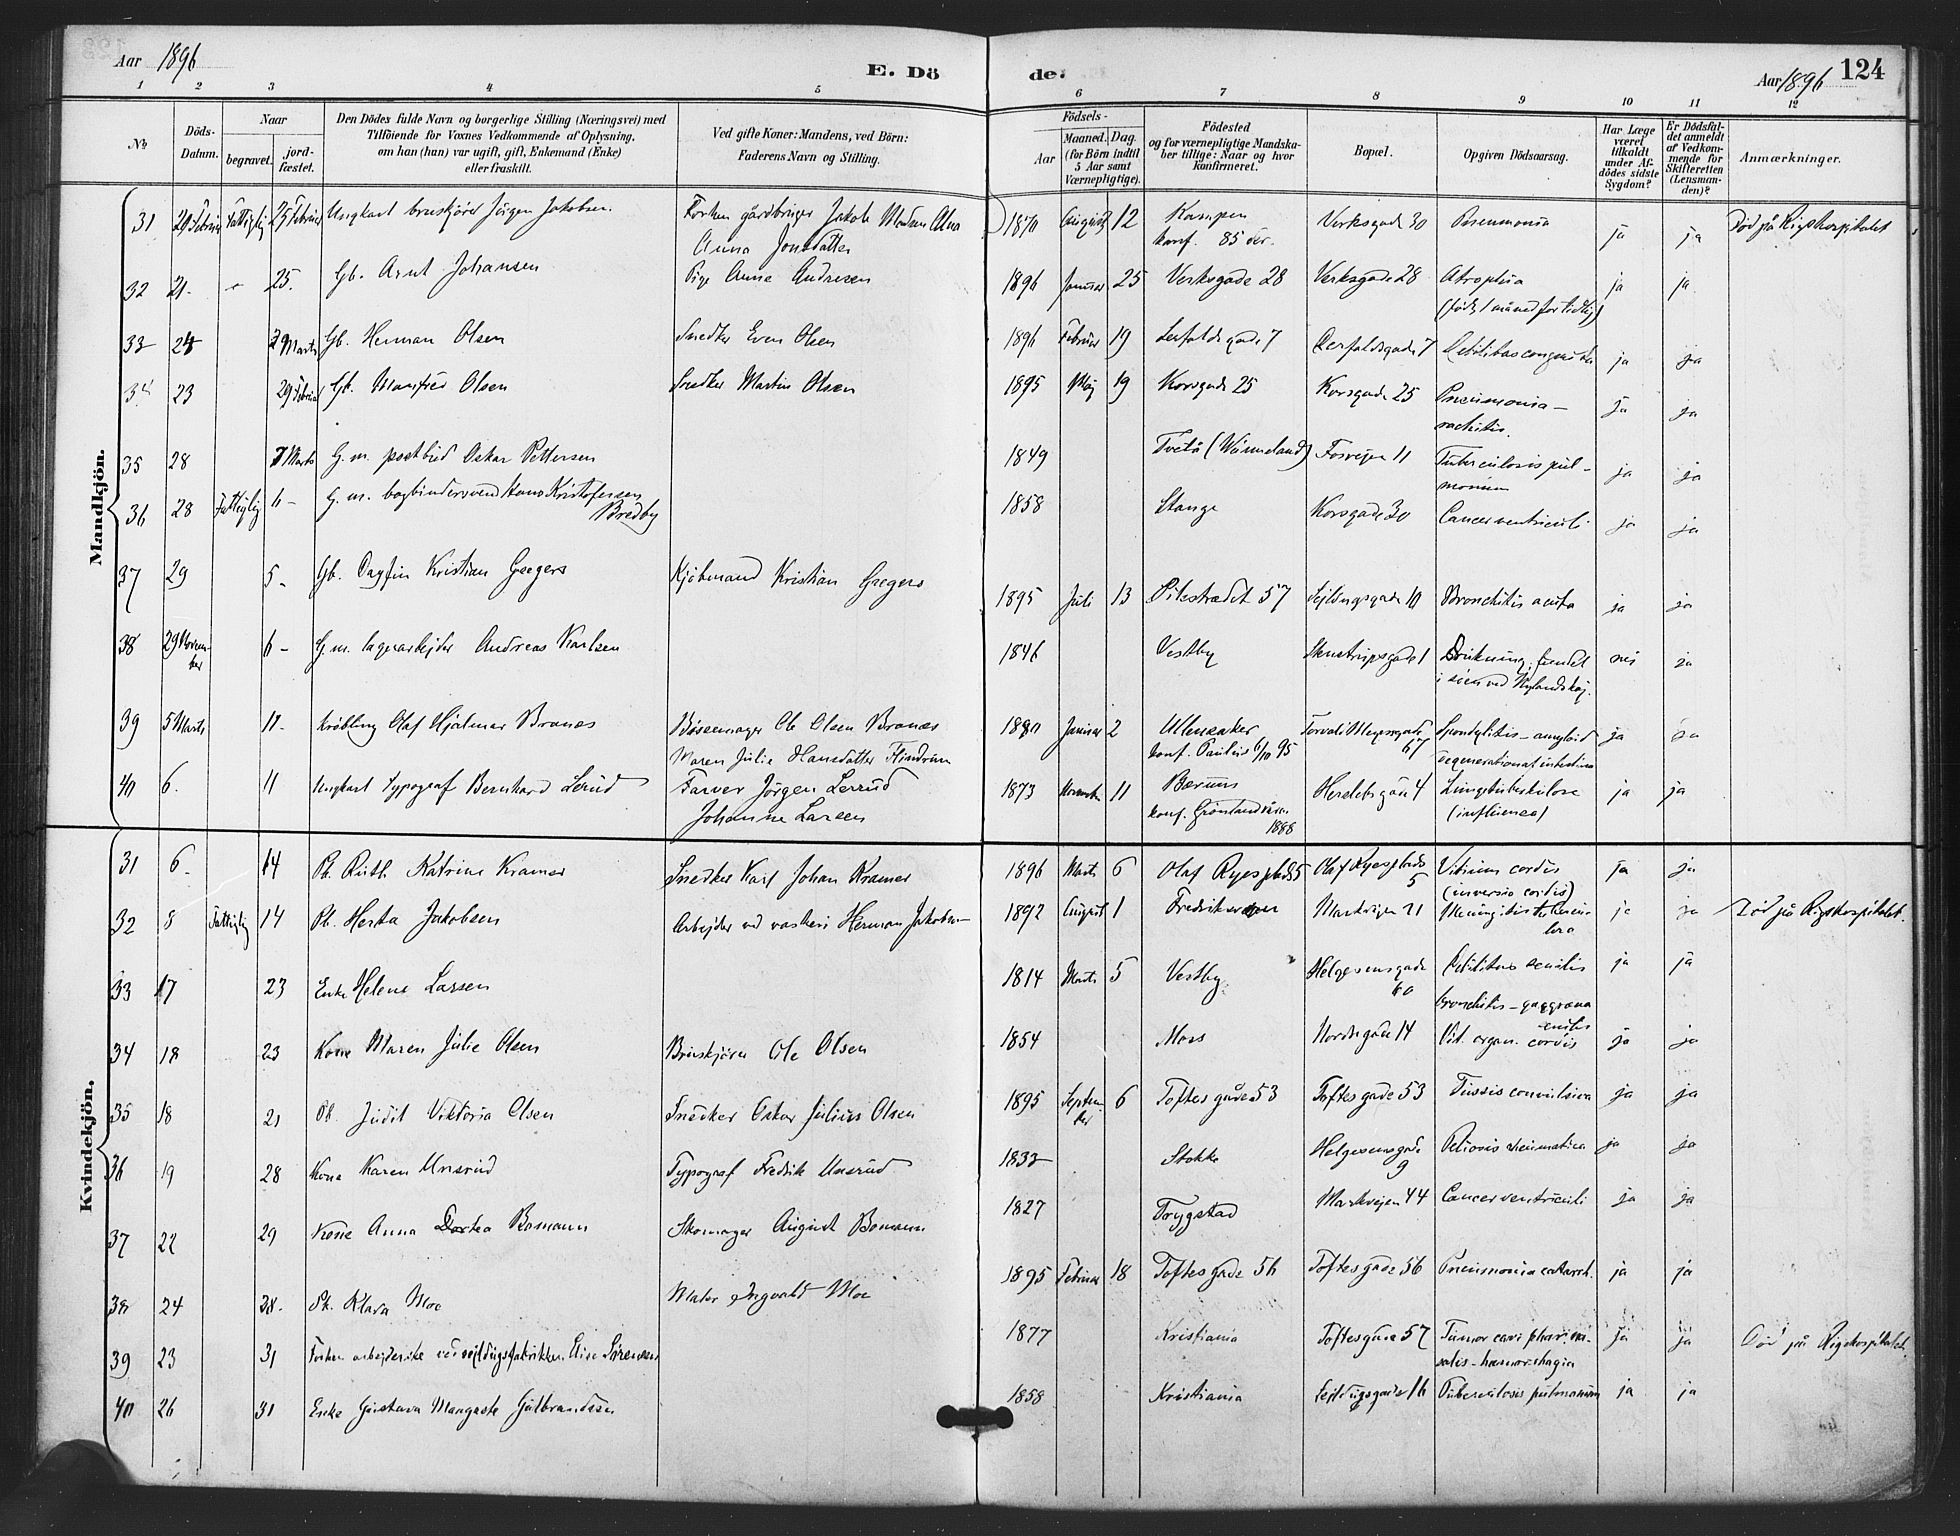 Aar 1896
E. Dö
de.
Aar 1896 124
1 2 3 4 5 6 7 8 9 10 11 12
No
Döds-Datum.
Naar
begravet.
jord-fæstet.
Den Dödes fulde Navn og borgerlige Stilling (Næringsvei) med
Tilföiende for Voxnes Vedkommende af Oplysning.
om han (han) var ugift, gift, Enkemand (Enke)
eller fraskilt.
Ved gifte Koner: Mandens, ved Börn:
Faderens Navn og Stilling.
Födsels-
Aar
Maaned. Dag.
(for Börn indtil
5 Aar samt
Værnepligtige).
Födested
og for værnepligtige Mandska-
ber tillige: Naar og hvor
konfirmeret.
Bopæl.
Opgiven Dödsaarsag.
Har Læge
været
tilkaldt
under Af-
dödes sidste
Sygdom?
Er Dödsfal-
det anmeldt
af Vedkom-
mende for
Skifteretten
(Lensman-
den)?
Anmærkninger.
Mandkjön.
31 Fattiglig 25 Februar Ungkarl bruskjører Jörgen Jakobsen Jakob Madsen 1870 August 12 Kampen Verksgade 30 Pneumonia ja ja Död på Rigshospitalet
Anna Jonsdatter konf. 85
32 21. - 25. Gb. Arnt Johansen Pige Anna Andresen 1896 Januar 25 Verksgade 28 Verksgade 28 Atrophia ja ja
(födt 1 måned for tidlig)
33 24 Marts Gb. Herman Olsen Snedker Even Olsen 1896 Februar 19 Lerfaldsgade 7 Lerfaldsgade 7 Debilitas congenita ja ja
34 23 29 Februar Gb. Manfred Olsen Snedker Martin Olsen 1895 Maj 19 Korsgade 25 Korsgade 25 Pneumonia - ja ja
rachitis.
35 28 7 Marts G.m. postbud Oskar Pettersen 1849 Tveta (Wärmeland) Fosvejen 11 Tuberculosis pul- ja ja
monum
36 28 Fattiglig 6 - G.m. bogbindersvend Hans Kristofersen 1858 Stange Korsgade 30 Cancer ventriculi ja ja
Bredby
37 29 5 - Gb. Dagfin Kristian Gregers Kjöbmand Kristian Gregers 1895 Juli 13 Pilestrædet 57 Sejldugsgade 10 Bronchitis acuta ja ja
38 29 Novem-ber 6 - G.m. lagerarbejder Andreas Karlsen 1846 Vestby 1 Drukning, fundet nei ja
i søen ved
39 5 Marts 11 - Krøbling Olaf Hjalmar Branæs Bøssemager Ole Olsen Branæs 1880 Januar 2 Ullensaker Torvald Meyersgade 67 Spondylitis - amyloid ja ja
Maren Julie Hansdatter konf. Paulus 6/10 95 degeneration at intestina
40 6. 11 Ungkarl typograf Bernhard Lerud Farver Jörgen Lerud 1873 November 11 Bærum Herslebsgade 4 Lungetuberkulose ja ja
Johanne Larsen konf. Grönland 1888 (influensa)
Kvindekjön.
31 6 14 Pb. Ruth Katrine Kramer Snedker Karl Johan Kramer 1896 Marts 6 Olaf Ryes plads 5 Olaf Ryes plads 5 Vitium cordis ja ja
(inversio cordis)
32 8 Fattiglig 14 Pb. Herta Jakobsen Arbejder ved vaskeri Herman Jakobsen 1892 August 1 Markvejen 21 Meningitis tubercu- ja ja Död på Rigshospitalet.
losa
33 17 23 Enke Helene Larsen 1814 Marts 5 Vestby Helgesensgade 60 Debilitas senilis ja ja
bronchitis - gangræna
senilis
34 18 23 Kone Maren Julie Olsen Bruskjörer Ole Olsen 1854 Moss Nordregade 14 Vit. organ. cordis ja ja
35 18 21 Pb. Judit Viktoria Olsen Snedker Oskar Julius Olsen 1895 Septem-ber 6 Toftesgade 53 Toftesgade 53 Tussis convulsiva ja ja
36 19 28 Kone Karen Unsrud Typograf Fredrik Unsrud 1833 Stokke Helgesensgade 9 Peliosis rheumatica ja ja
37 22 29 Kone Anna Dortea Bomann Skomager August Bomann 1827 Trygstad Markvejen 44 Cancer ventriculi ja ja
38 24 28. Pb. Klara Moe Maler Ingvald Moe 1895 Februar 18 Toftesgade 56 Toftesgade 56 Pneumonia catarrh. ja ja
39 23 31 arbejderske ved sejldugsfabrikken Elise Sörensen 1877 Kristiania Toftesgade 57 Tumor cavi pharyna- ja ja Död på Rigshospitalet.
salis - hæmorrhagia
40 26 31 Enke Gustava Margrete Gulbrandsen 1858 Kristiania Sejldugsgade 16 Tuberculosis pulmonum ja ja